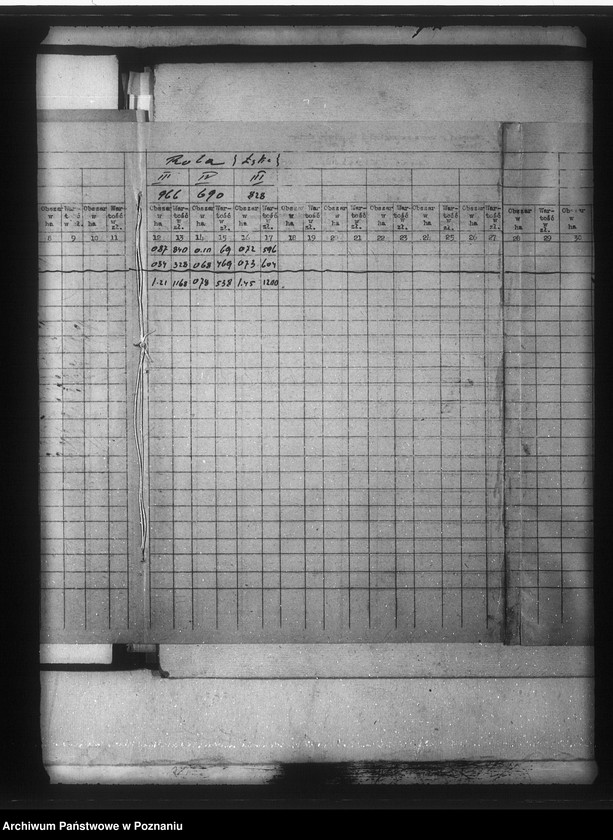 Rola { Łąka }
III IV III
966 690 828
Obszar w ha Wartość w zł. Obszar w ha Wartość w zł. Obszar w ha Wartość w zł. Obszar w ha Wartość w zł. Obszar w ha Wartość w zł. Obszar w ha Wartość w zł. Obszar w ha Wartość w zł. Obszar w ha Wartość w zł. Obszar w ha Wartość w zł. Obszar w ha Wartość w zł. Obszar w ha Wartość w zł. Obszar w ha
8 9 10 11 12 13 14 15 16 17 18 19 20 21 22 23 24 25 26 27 28 29 30
087 840 0.10 69 072 596
034 328 068 469 073 604
1.21 1168 078 538 1.45 1200
Archiwum Państwowe w Poznaniu